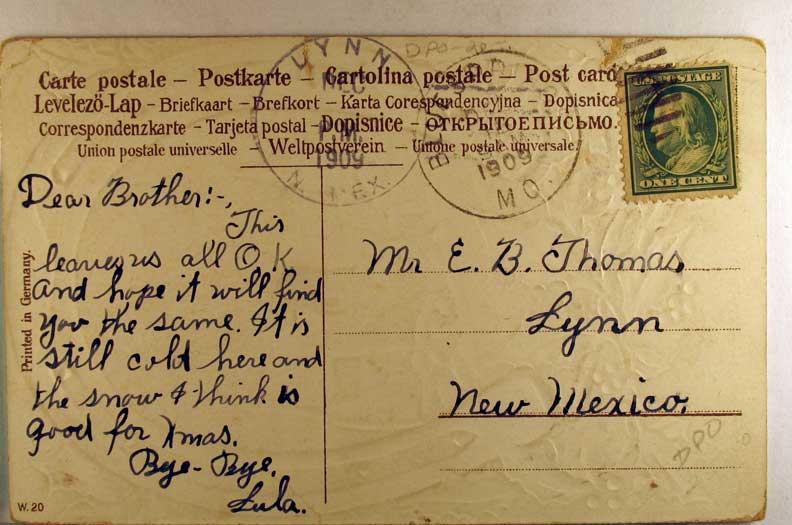 DPO-9e
Carte postale – Postkarte – Cartolina postale – Post card
Levelező-Lap – Briefkaart – Brefkort – Karta Corespondencyjna – Dopisnica
Correspondenzkarte – Tarjeta postal – Dopisnice – ОТКРЫТОЕПИСЬМО.
Union postale universelle – Weltpostverein – Unione postale universale.
LYNN
DEC
P.M.
1909
N. MEX.
1909
MO.
U.S. POSTAGE
ONE CENT
Dear Brother:-,
This
leaves us all O.K
and hope it will find
you the same. It is
still cold here and
the snow I think is
good for Xmas.
Bye-Bye.
Lula.
Mr E. B. Thomas
Lynn
New Mexico.
DPO
Printed in Germany.
W. 20